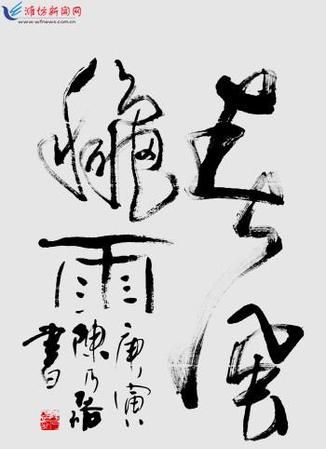 潍坊新闻网
www.wfnews.com.cn
春風
穐雨
庚寅
陳乃
書